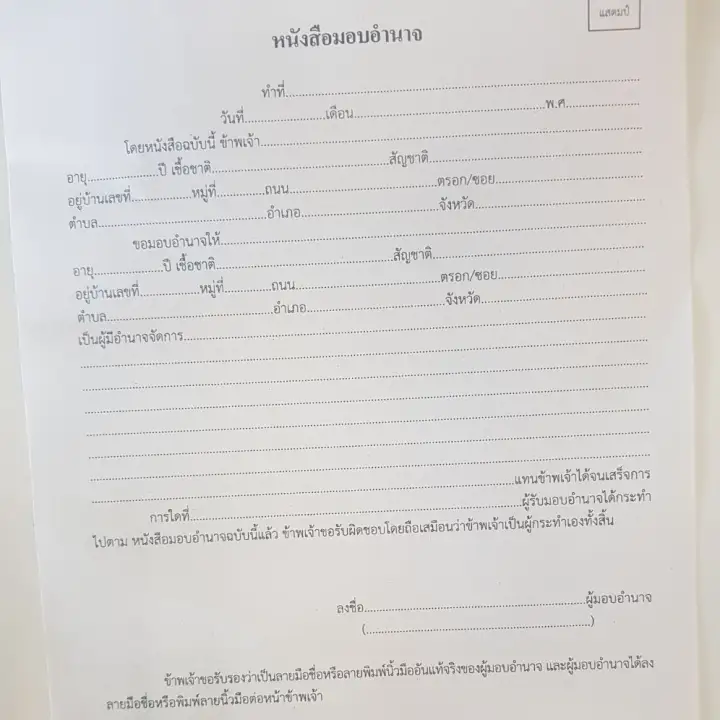 แสตมป์
หนังสือมอบอำนาจ
ทำที่....................................................................................
วันที่........................เดือน.........................................................พ.ศ......................
โดยหนังสือฉบับนี้ ข้าพเจ้า....................................................................................
อายุ.....................ปี เชื้อชาติ.....................................................สัญชาติ..............................................................
อยู่บ้านเลขที่..................หมู่ที่...............ถนน............................................ตรอก/ซอย............................................
ตำบล..................................................อำเภอ.........................................จังหวัด..................................................
ขอมอบอำนาจให้....................................................................................
อายุ.....................ปี เชื้อชาติ.....................................................สัญชาติ..............................................................
อยู่บ้านเลขที่..................หมู่ที่..............ถนน...........................................ตรอก/ซอย............................................
ตำบล..................................................อำเภอ.........................................จังหวัด..................................................
เป็นผู้มีอำนาจจัดการ....................................................................................
....................................................................................
....................................................................................
....................................................................................
....................................................................................
....................................................................................
....................................................................................
....................................................................................แทนข้าพเจ้าได้จนเสร็จการ
การใดที่....................................................................................ผู้รับมอบอำนาจได้กระทำ
ไปตาม หนังสือมอบอำนาจฉบับนี้แล้ว ข้าพเจ้าขอรับผิดชอบโดยถือเสมือนว่าข้าพเจ้าเป็นผู้กระทำเองทั้งสิ้น
ลงชื่อ..................................................................ผู้มอบอำนาจ
(....................................................................)
ข้าพเจ้าขอรับรองว่าเป็นลายมือชื่อหรือลายพิมพ์นิ้วมืออันแท้จริงของผู้มอบอำนาจ และผู้มอบอำนาจได้ลง
ลายมือชื่อหรือพิมพ์ลายนิ้วมือต่อหน้าข้าพเจ้า